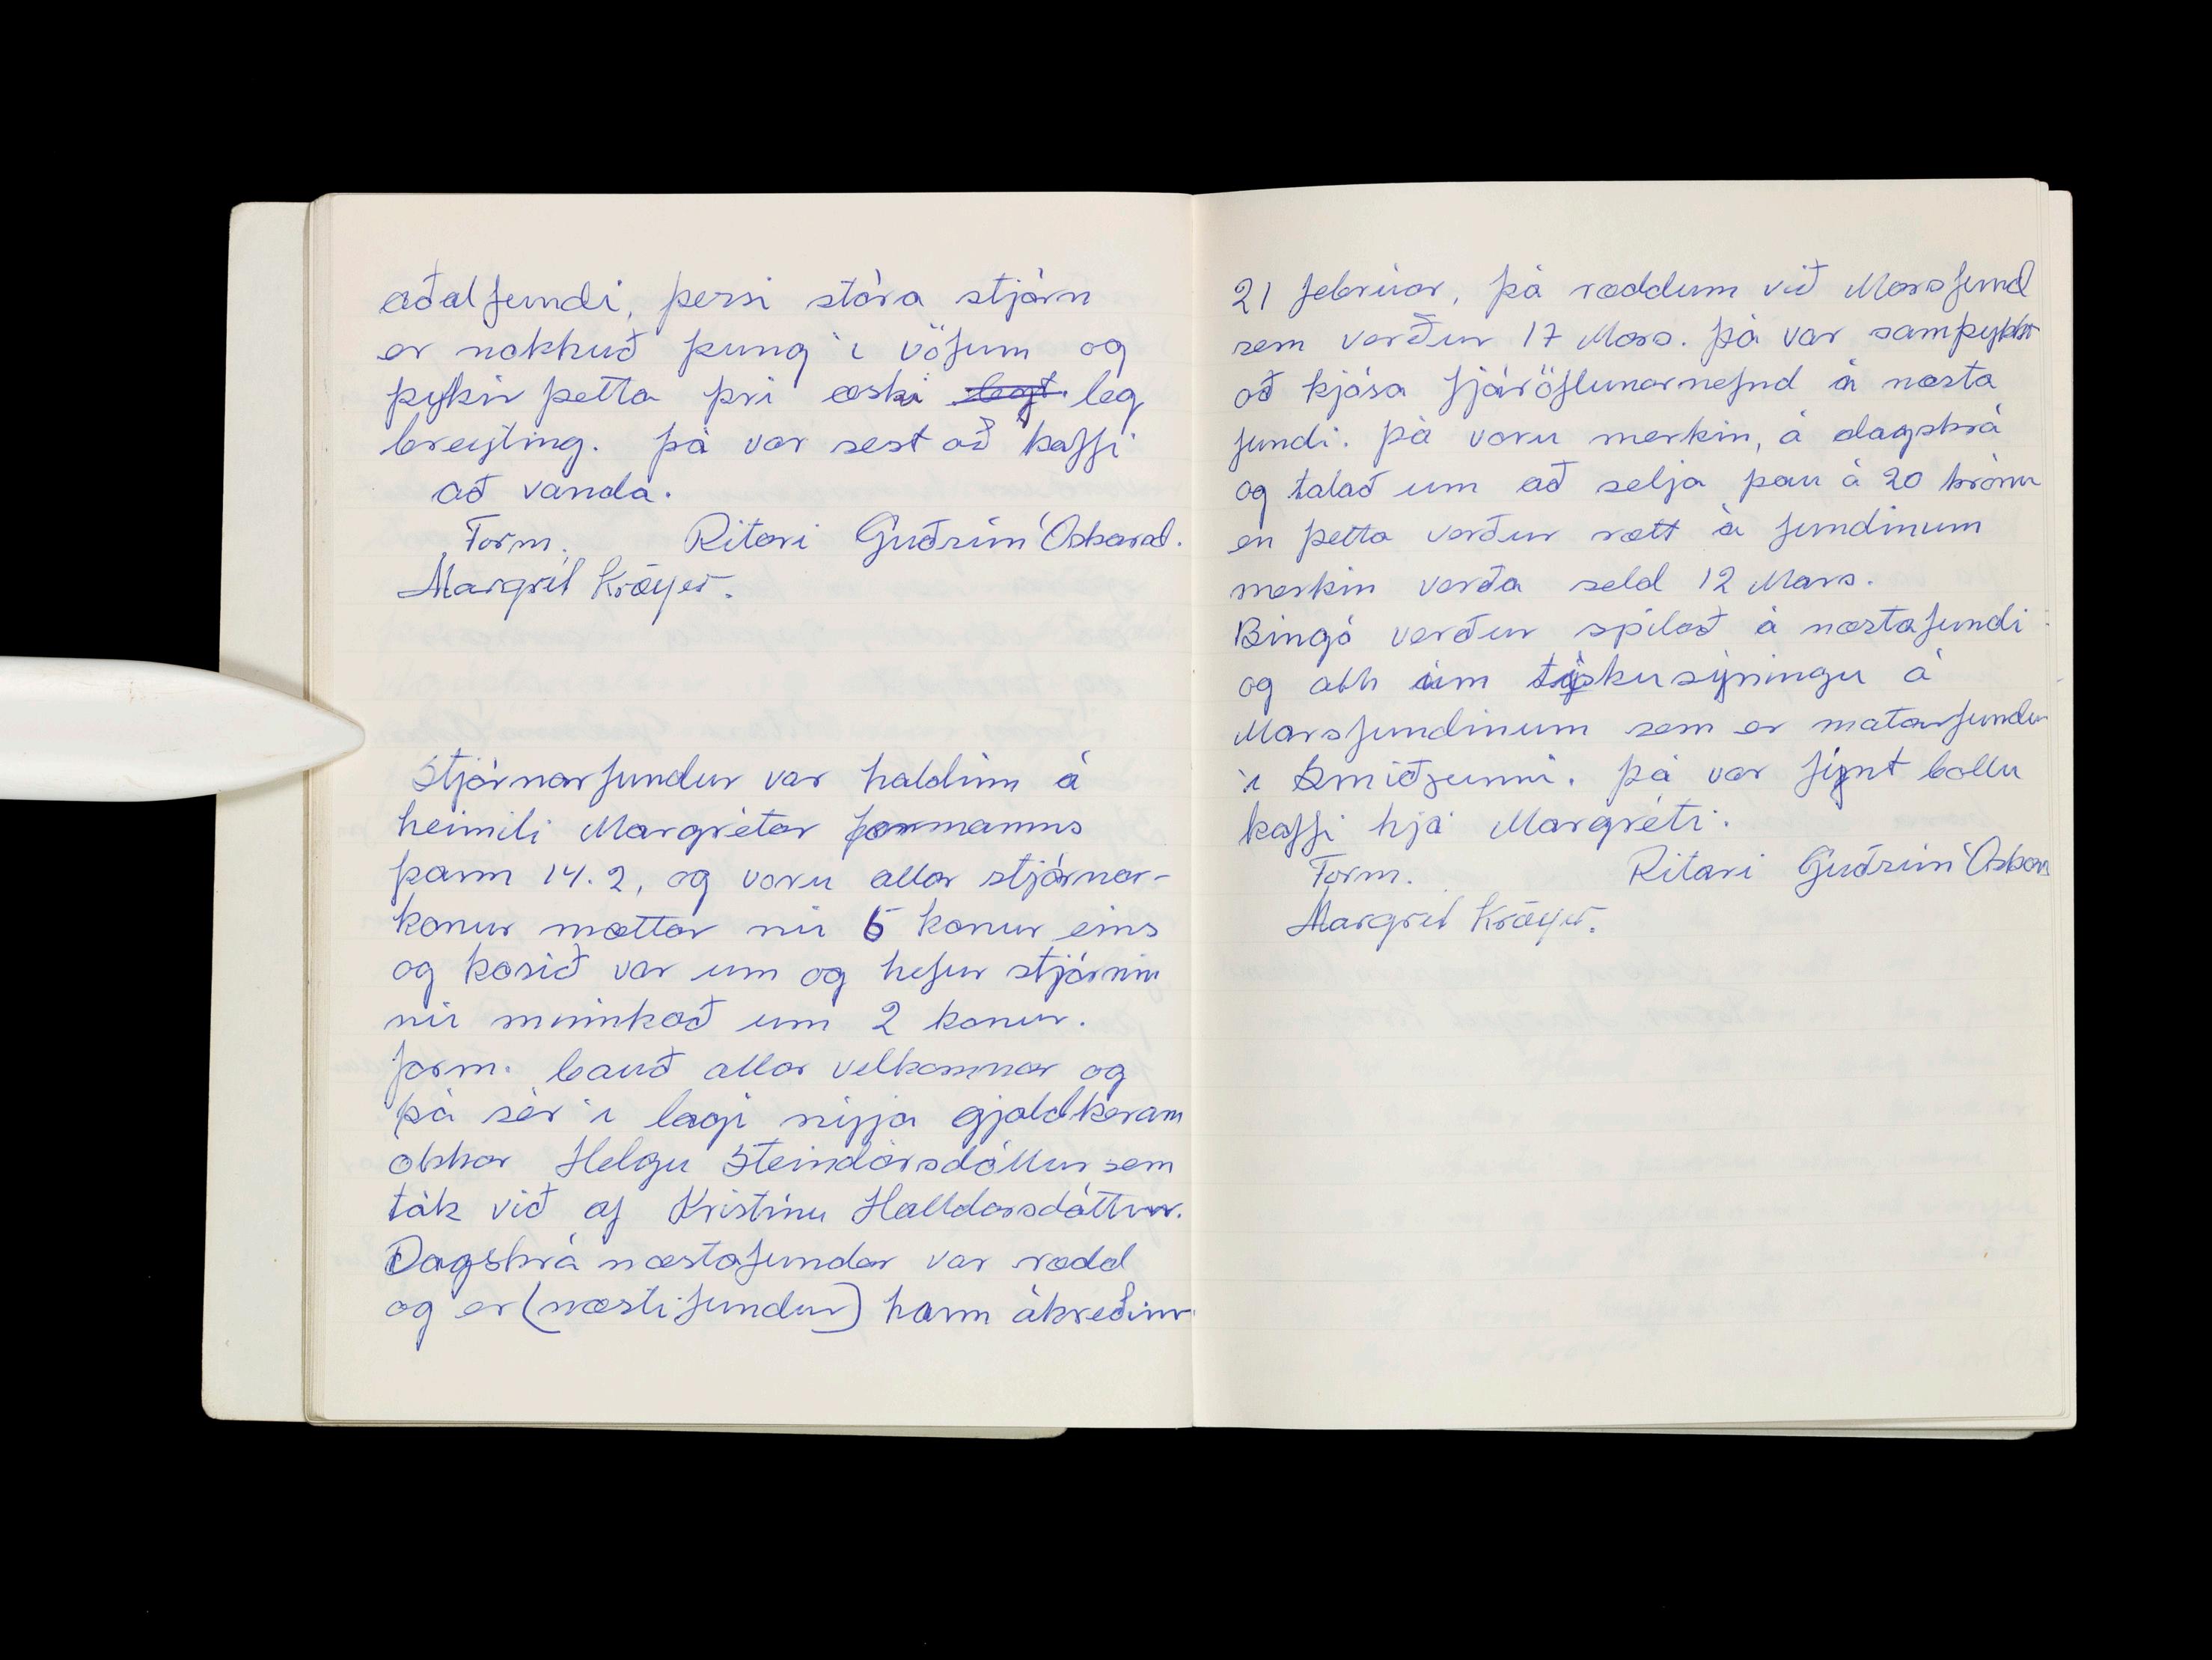 aðalfundi, þessi stóra stjórn
er nokkuð þung í vöfum og
þykir þetta þvi æski legt leg
breyting. þá var sest að kaffi
að vanda.
Form. Ritari Guðrún Óskarsd.
Margrét Kröyer.
Stjórnarfundur var haldinn á
heimili Margrétar formanns
þann 14.2, og voru allar stjórnar-
konur mættar nú 5 konur eins
og kosið var um og hefur stjórnin
nú minnkað um 2 konur.
form. bauð allar velkomnar og
þá sér í lagi nýja gjaldkerann
okkar Helgu Steindórsdóttur sem
tók við af Kristínu Halldorsdóttur.
Dagskrá næstafundar var rædd
og er (næsti fundur) hann ákveðinn
21 februar, þá ræddum við Marsfund
sem verður 17 Mars. þá var samþykkt
að kjósa fjáröflunarnefnd á næsta
fundi. þá voru merkin, á dagskrá
og talað um að selja þau á 20 krónur
en þetta verður rætt á fundinum
merkin verða seld 12 Mars.
Bingó verður spilað á næstafundi
og ath um tískusýningu á
Marsfundinum sem er matarfundur
í Smiðjunni. þá var fínt bollu
kaffi hjá Margréti.
Form. Ritari Guðrún Óskars
Margrét Kröyer.